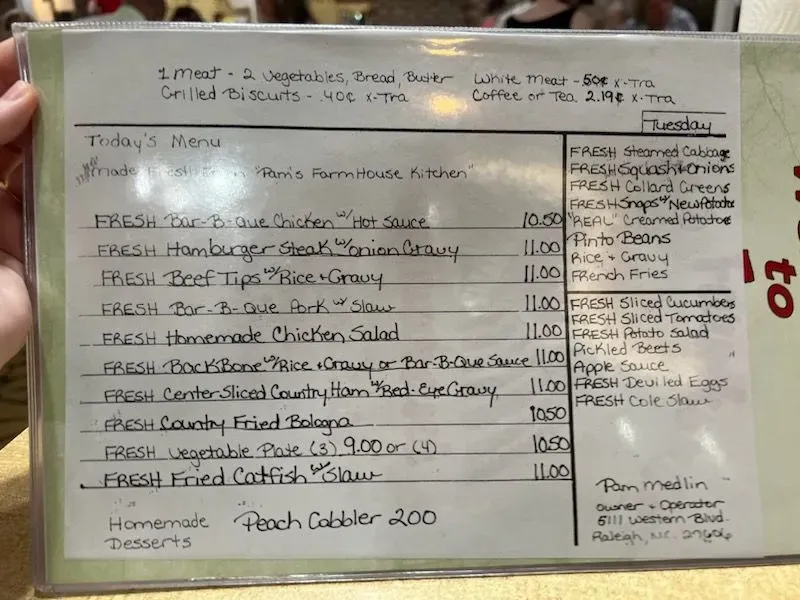 1 Meat - 2 Vegetables, Bread, Butter
Grilled Biscuits - .40¢ X-Tra
White Meat - 50¢ X-Tra
Coffee or Tea 2.19¢ X-Tra
Tuesday
Today's Menu
made Fresh "Pam's FarmHouse Kitchen"
FRESH Bar-B-Que Chicken w/Hot Sauce 10.50
FRESH Hamburger Steak w/onion Gravy 11.00
FRESH Beef Tips w/Rice + Gravy 11.00
FRESH Bar-B-Que Pork w/ Slaw 11.00
FRESH Homemade Chicken Salad 11.00
FRESH BackBone w/Rice + Gravy or Bar-B-Que Sauce 11.00
FRESH Center Sliced Country Ham w/Red-Eye Gravy 11.00
FRESH Country Fried Bologna 10.50
FRESH Vegetable Plate (3) 9.00 or (4) 10.50
FRESH Fried Catfish w/Slaw 11.00
Homemade
Desserts
Peach Cobbler 200
FRESH Steamed Cabbage
FRESH Squash + Onions
FRESH Collard Greens
FRESH Snaps w/ New Potato
"REAL" Creamed Potatoe
Pinto Beans
Rice + Gravy
French Fries
FRESH Sliced Cucumbers
FRESH Sliced Tomatoes
FRESH Potato Salad
Pickled Beets
Apple Sauce
FRESH Deviled Eggs
FRESH Cole Slaw
Pam Medlin
owner + Operator
5111 Western Blvd.
Raleigh, NC. 27606
to